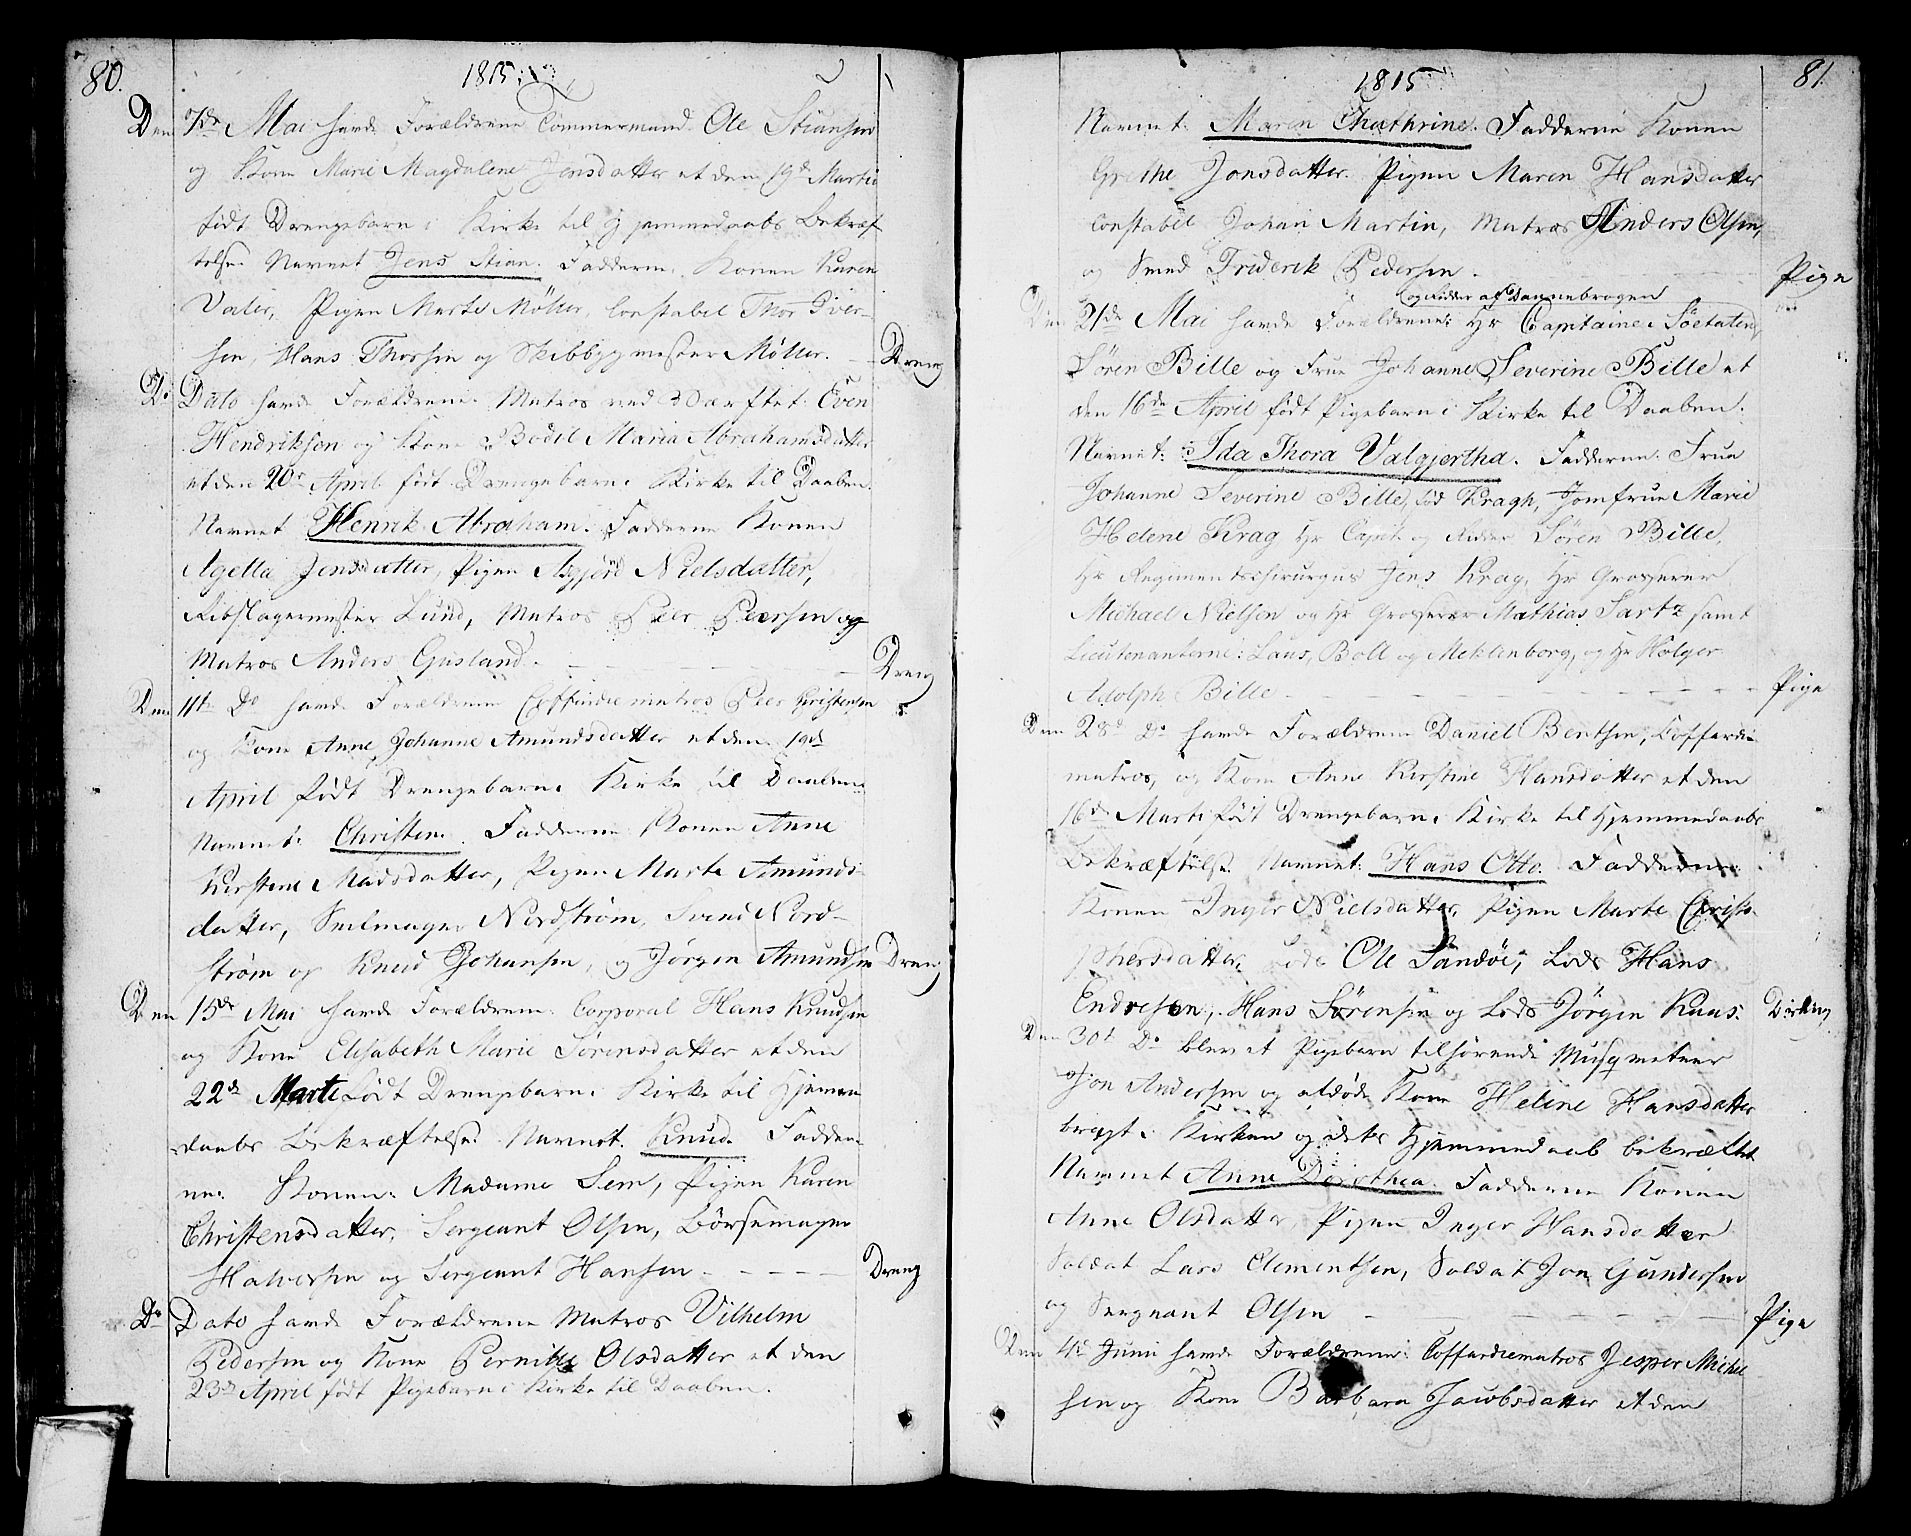 80.
1815.
Den 7de Mai havde Forældrene Tömmermand Ole Stiansen
og Kone Marie Magdalene Jensdatter et den 19d Martii
født Drengebarn i Kirke til Hjemmedaabs Bekræf
telse. Navnet Jens Stian. Fadderne. Konen Karen
Valer, Pigen Marte Möller, Constabel Thor Iver-
sen, Hans Thorsen og Skibbygmester Møller. — Dreng
Do Dato havde Forældrene Matros ved Værftet. Even
Hendriksen og Kone Bodil Maria Abrahamsdatter
et den 20de April født Drengebarn i Kirke til Daaben.
Navnet Henrik Abraham. Fadderne Konen
Agetta Jensdatter, Pigen Asgjörd Nielsdatter,
Ribslagermester Lund, Matros Peer Peersen og
Matros Anders Gusland. — Dreng
Den 11te Do havde Forældrene Coffardiematros Peer Christensen
og Kone Anne Johanne Amundsdatter et den 19d
April født Drengebarn i Kirke til Daaben.
Navnet: Christen. Fadderne Konen Anne
Kirstene Madsdatter, Pigen Marte Amunds-
datter, Seilmager Nordstrøm, Svend Nord-
strøm og Knud Johansen, og Jørgen Amundsen Dreng
Den 15de Mai havde Forældrene. Corporal Hans Knudsen
og Kone Elisabeth Marie Sørensdatter et den
22de Marti født Drengebarn i Kirke til Hjemme
daabs Bekræftelse. Navnet. Knud. Fadder-
ne. Konen. Madame Sem, Pigen Karen
Christensdatter, Sergeant Olsen, Börsemager
Halvorsen og Sergeant Hansen — Dreng
Do Dato havde Forældrene Matros Vilhelm
Pedersen og Kone Pernille Olsdatter et den
23de April født Pigebarn i Kirke til Daaben.
81.
1815
Navnet. Maren Chathrine. Fadderne Konen
Grethe Jonsdatter. Pigen Maren Hansdatter
Constabel Johan Martin, Matros Anders Olsen,
og Smed Friderik Pedersen. Pige
og Ridder af Dannebrogen
Den 21de Mai havde Forældrene: Hr Capitaine i Söetaten,
Søren Bille og Frue Johanne Severine Bille et
den 16de April født Pigebarn i Kirke til Daaben.
Navnet: Ida Thora Valgjertha. Fadderne. Frue
Johanne Severine Bille, født Kragh, Jomfrue Marie
Helene Krag Hr Capit. og Ridder Søren Bille,
Hr Regimentschirurgus Jens Krag, Hr Grosserer
Michael Nielsen og Hr Grosserer Mathias Sartz samt
Lieutenanterne: Laus, Boll og Meklenborg, og Hr Holger
Adolph Bille — Pige
Den 28d Do havde Forældrene Daniel Bentsen, Coffardi-
matros, og Kone Anne Kirstine Hansdatter et den
16de Marti født Drengebarn i Kirke til Hjemmedaabs
Bekræftelse Navnet: Hans Otto. Fadderne:
Konen Inger Nielsdatter, Pigen Marte Christo-
phersdatter, Lods Ole Sandöe, Lods Hans
Endresen, Hans Sørensen og Lods Jørgen Kaas. Dreng
Den 30d Do blev et Pigebarn tilhörende Musqueteer
Jon Andersen og afdøde Kone Helene Hansdatter
bragt i Kirken og dets Hjemmedaab bekræftet
Navnet Anne Dorthea. Fadderne Konen
Anne Olsdatter, Pigen Inger Hansdatter
Soldat Lars Clementsen, Soldat Jon Gundersen
og Sergeant Olsen — Pige
Den 4de Junii havde Forældrene: Coffardiematros Jesper Mikel
sen og Kone Barbara Jacobsdatter et den